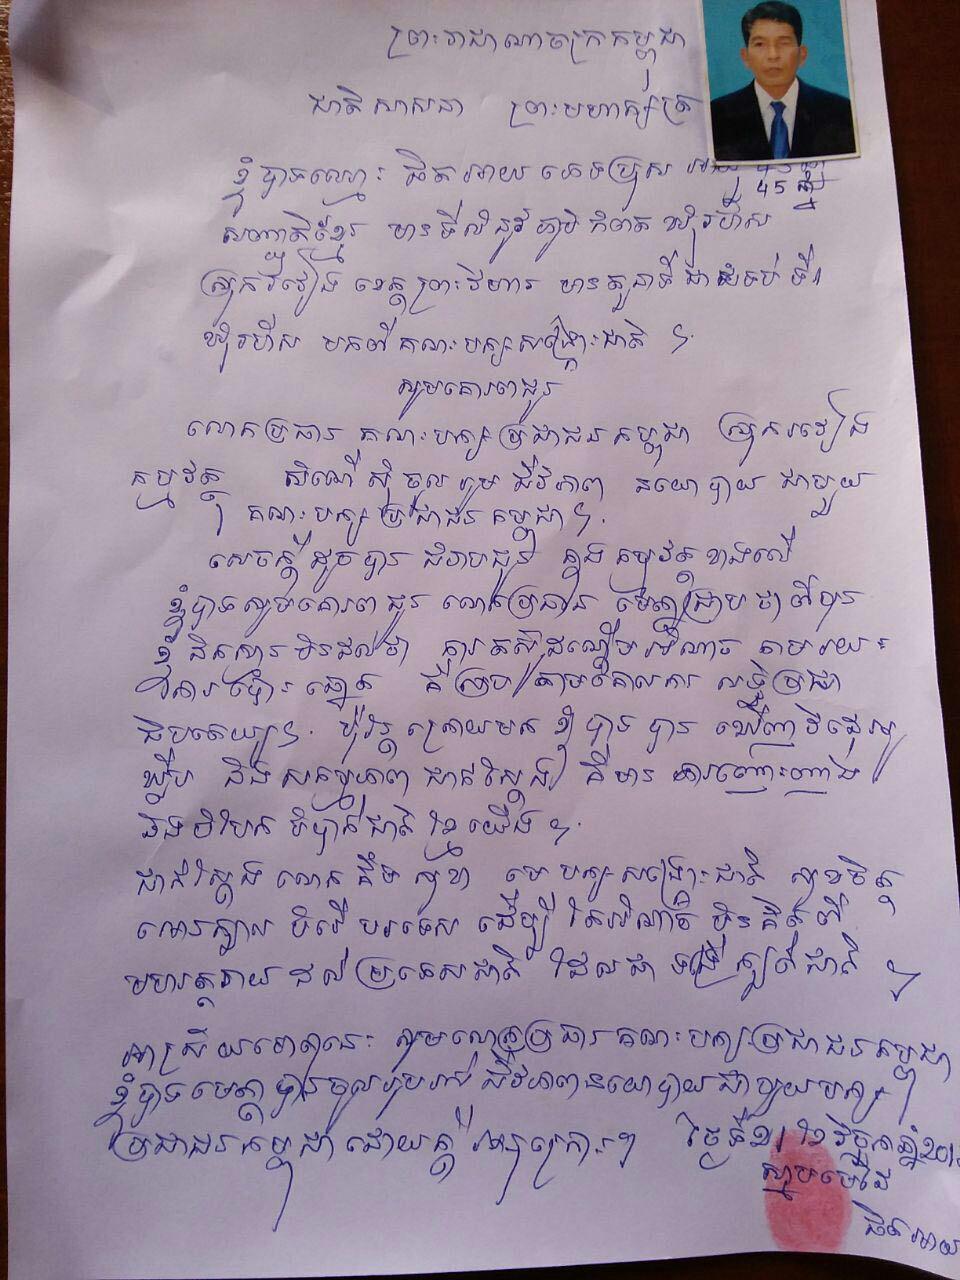 ព្រះរាជាណាចក្រកម្ពុជា
ជាតិ សាសនា ព្រះមហាក្សត្រ
ខ្ញុំបាទឈ្មោះ ធិត អាយ ភេទប្រុស 45 ឆ្នាំ
សញ្ជាតិខ្មែរ មានទីលំនៅភូមិ
ស្រុករវៀង ខេត្តព្រះវិហារ មានតួនាទីជាជំទប់ ទី១
មកពីគណៈបក្សសង្គ្រោះជាតិ ។
សូមគោរពជូន
លោកប្រធាន គណៈបក្សប្រជាជនកម្ពុជា ស្រុករវៀង
កម្មវត្ថុ សំណើសុំចូលរួម ជីវភាព នយោបាយ ជាមួយ
គណៈបក្សប្រជាជនកម្ពុជា ។
សេចក្តីដូចបាន ជំរាបជូន ក្នុងកម្មវត្ថុខាងលើ
ខ្ញុំបាទសូមគោរពជូន លោកប្រធាន មេត្តាជ្រាបថា ពីមុន
ខ្ញុំ ស្មានមិនដល់ថា ការតស៊ូដណ្តើមអំណាច តាមរយៈ
ការបោះឆ្នោត គឺស្របតាមគោលការណ៍ លទ្ធិប្រជា
ធិបតេយ្យ។ ប៉ុន្តែ ក្រោយមក ខ្ញុំបាទ បាន ឃើញវីដេអូ
ឃ្លីប និងសកម្មភាព ជាក់ស្តែង គឺមានការញុះញង់
ជាតិខ្មែរយើង ។
ជាក់ស្តែង លោក កឹម សុខា មេបក្សសង្គ្រោះជាតិ សុខចិត្ត
បំរើបរទេស ដើម្បីតែអំណាច មិនគិតពី
មហន្តរាយ ដល់ប្រទេសជាតិ ដែលជា ជាតិ ។
អាស្រ័យហេតុនេះ សូមលោកប្រធានគណៈបក្សប្រជាជនកម្ពុជា
ខ្ញុំបាទមេត្តាបានចូលរួមរស់ ជីវភាពនយោបាយជាមួយបក្ស
ប្រជាជនកម្ពុជាដោយក្តីអនុគ្រោះ។ ថ្ងៃទី ខែវិច្ឆិកាឆ្នាំ
ស្នាមមេដៃ
ធិត អាយ